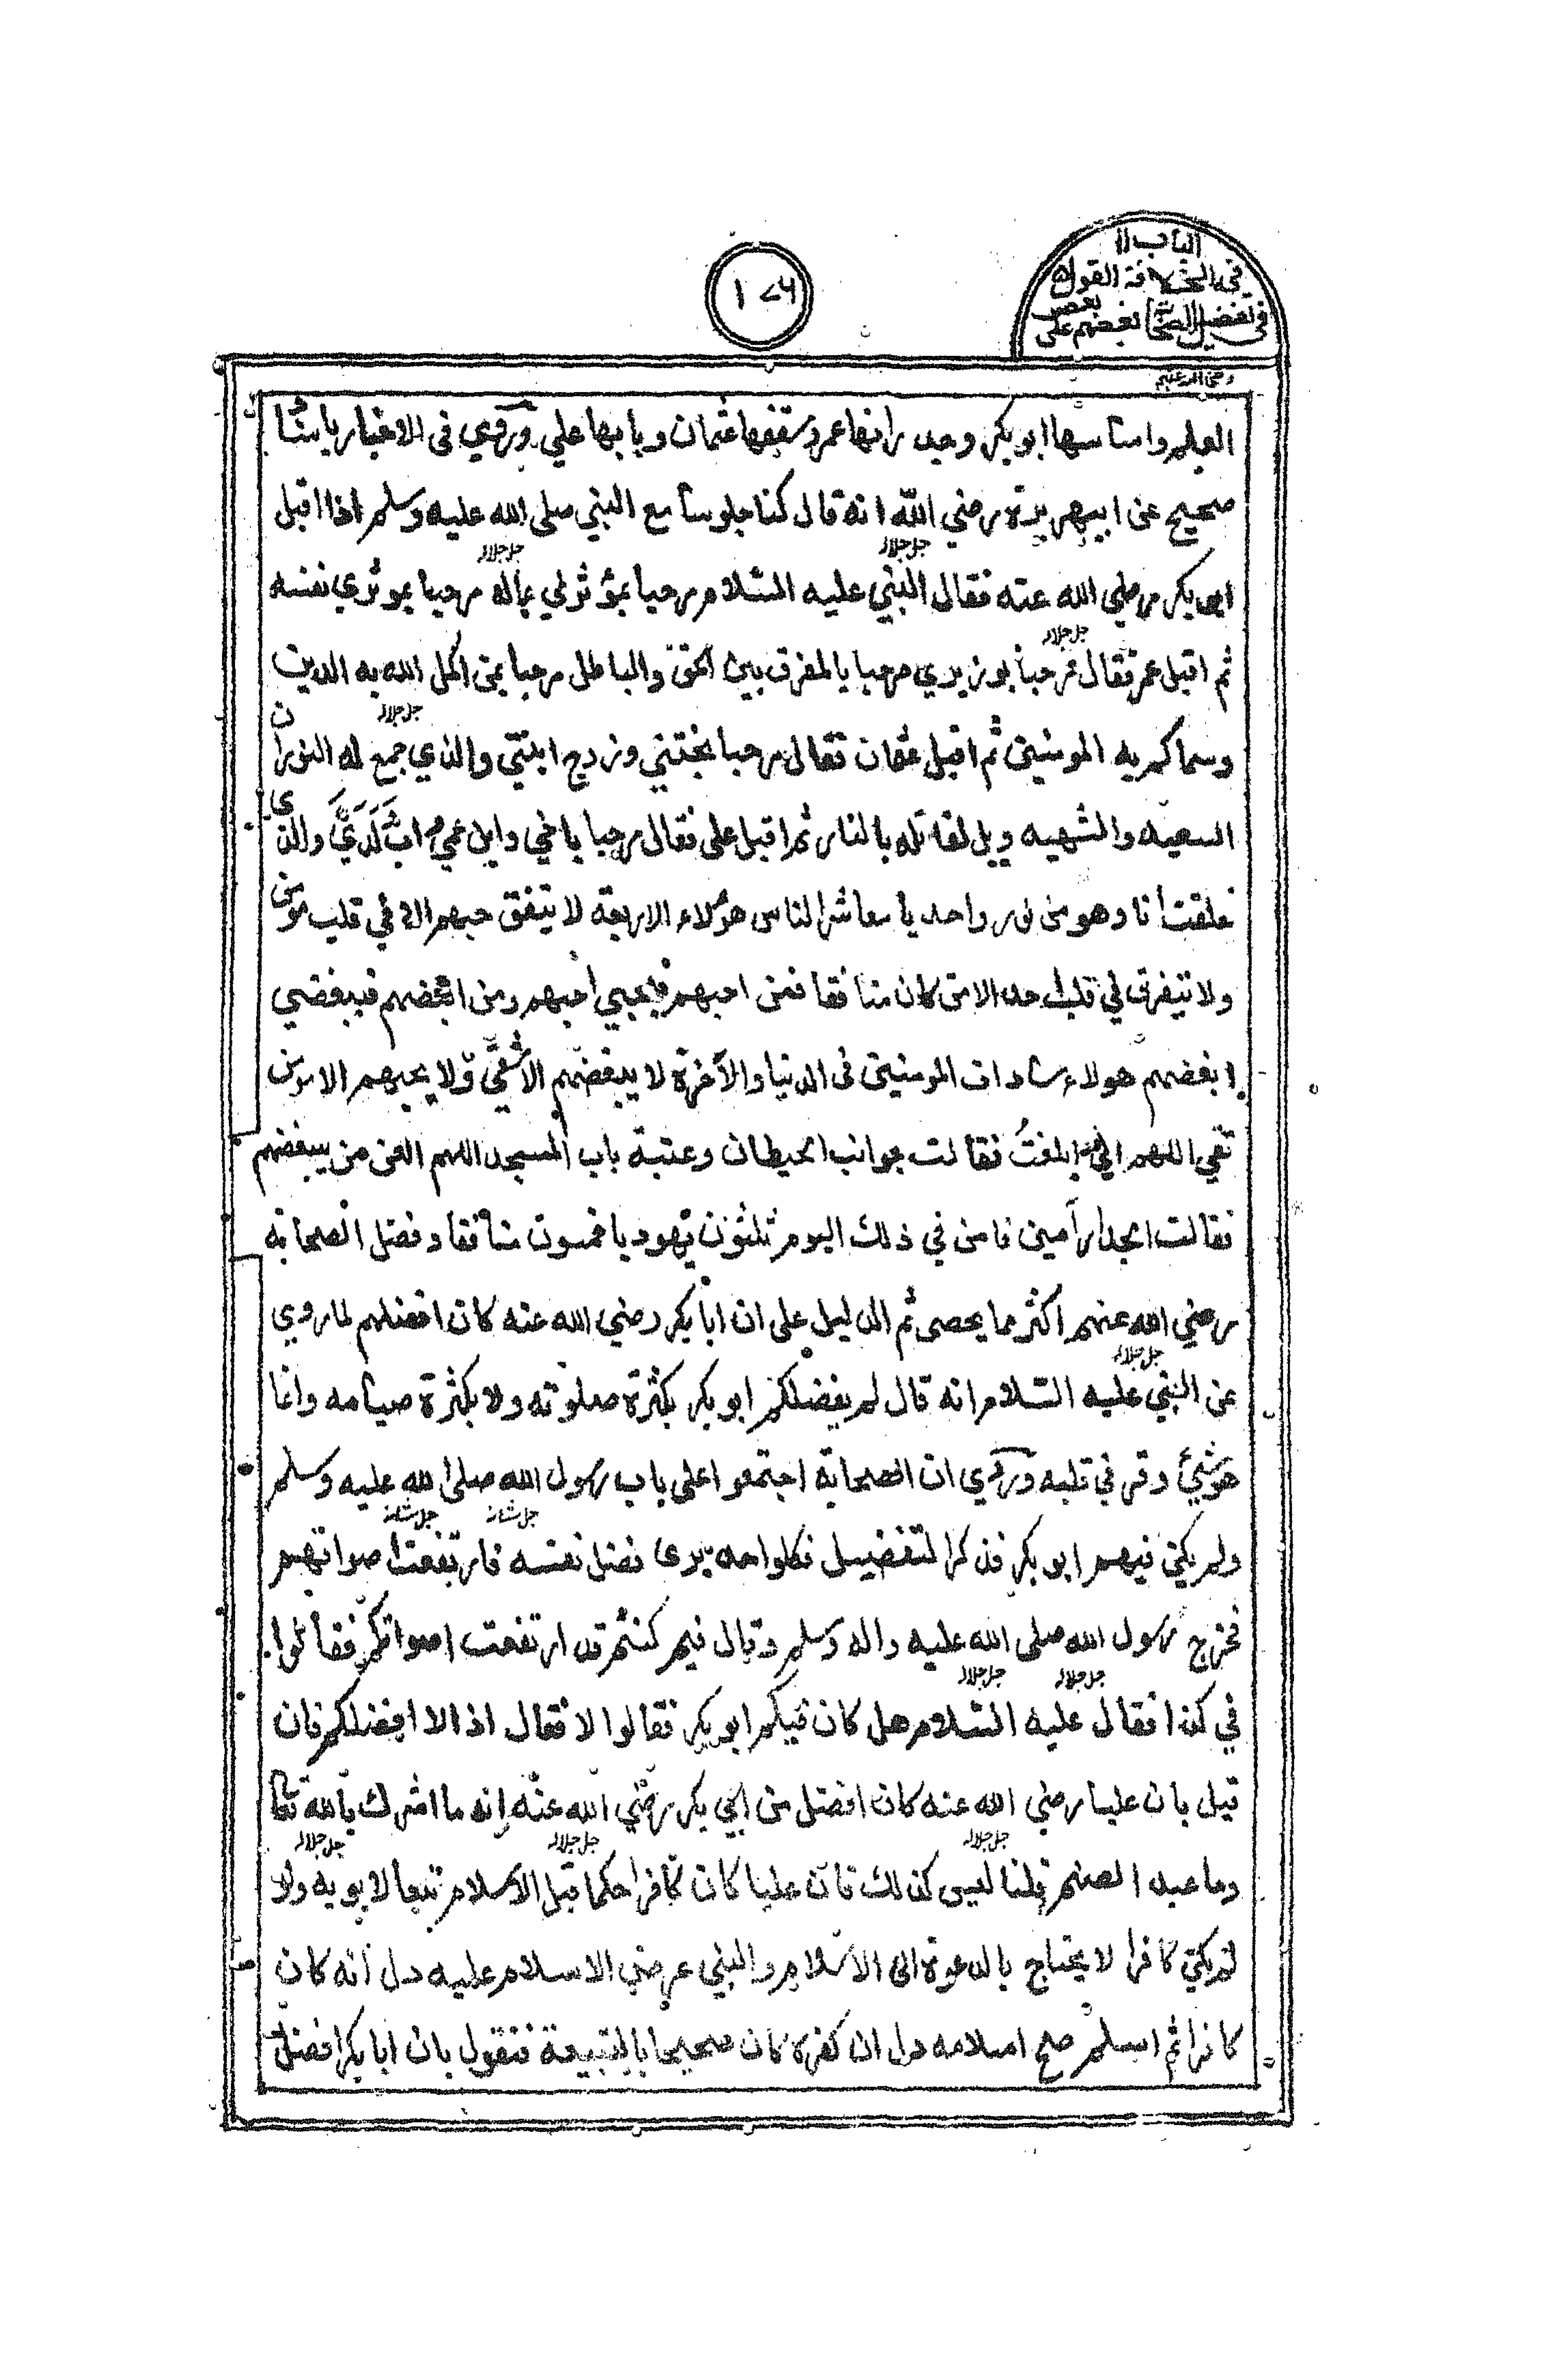 الباب ١١
في الخلافة القول ٥
في تفضيل الصحابة بعضهم على بعض
١٧٦
رضي الله عنهم
العلم واساسها ابو بكر وجدرانها عمر وسقفها عثمان وبابها علي وروي في الاخبار باسنا
صحيح عن ابيهريرة رضي الله انه قال كنا جلوسا مع النبي صلى الله عليه وسلم اذا اقبل
جل جلاله جل جلاله
ابى بكر رضي الله عنه فقال النبي عليه السلام مرحبا بمؤثرلي بماله مرحبا بموثري نفسه
جل جلاله
ثم اقبل عمر فقال مرحبا بوزيري مرحبا بالمفرق بين الحق والباطل مرحبا بمن اكمل الله به الدين
جل جلاله
وسماكم به المومنين ثم اقبل عثمان فقال مرحبا بختني وزوج ابنتي والذي جمع له النوران
السعيد والشهيد ويل لقاتله بالنار ثم اقبل على فقال مرحبا باخي وابن عمي والذي
خلقت انا وهو من نور واحد يا معاشر الناس هؤلاء الاربعة لا يتفق حبهم الا في قلب مومن
ولا يتفرق في قلب احد الا من كان منافقا فمن احبهم فبحبي احبهم ومن ابغضهم فببغضي
ابغضهم هولاء سادات المومنين في الدنيا والآخرة لا يبغضهم الا شقي ولا يحبهم الا مومن
تقي اللهم اني ابلغت فقالت جوانب الحيطان وعتبة باب المسجد اللهم العن من يبغضهم
فقالت الجدار آمين فامن في ذلك اليوم ثلثون يهوديا خمسون منافقا وفضل الصحابة
رضي الله عنهم اكثر مما يحصى ثم الدليل على ان ابا بكر رضي الله عنه كان افضلهم لما روي
جل جلاله
عن النبي عليه السلام انه قال لم يفضلكم ابو بكر بكثرة صلوته ولا بكثرة صيامه وانما
هو شيئ وقر في قلبه وروي ان الصحابة اجتمعوا على باب رسول الله صلى الله عليه وسلم
جل شانه جل شانه
ولم يكن فيهم ابو بكر فذكر التفضيل فكلواحد يرى فضل نفسه فارتفعت اصواتهم
فخرج رسول الله صلى الله عليه واله وسلم وقال فيم كنتم قد ارتفعت اصواتكم فقالوا
جل جلاله جل جلاله
في كذا فقال عليه السلام هل كان فيكم ابو بكر فقالوا لا فقال اذا لا افضلكم فان
قيل بان عليا رضي الله عنه كان افضل من ابي بكر رضي الله عنه انه ما اشرك بالله تعا
جل جلاله جل جلاله جل جلاله
وما عبد الصنم قلنا ليس كذلك فان عليا كان كافرا حكما قبل الاسلام تبعا لابويه ولو
لم يكن كافرا لا يحتاج بالدعوة الى الاسلام والنبي عرض الاسلام عليه دل انه كان
كافرا ثم اسلم صح اسلامه دل ان كفره كان صحيحا بالتبيعة فنقول بان ابا بكر افضل